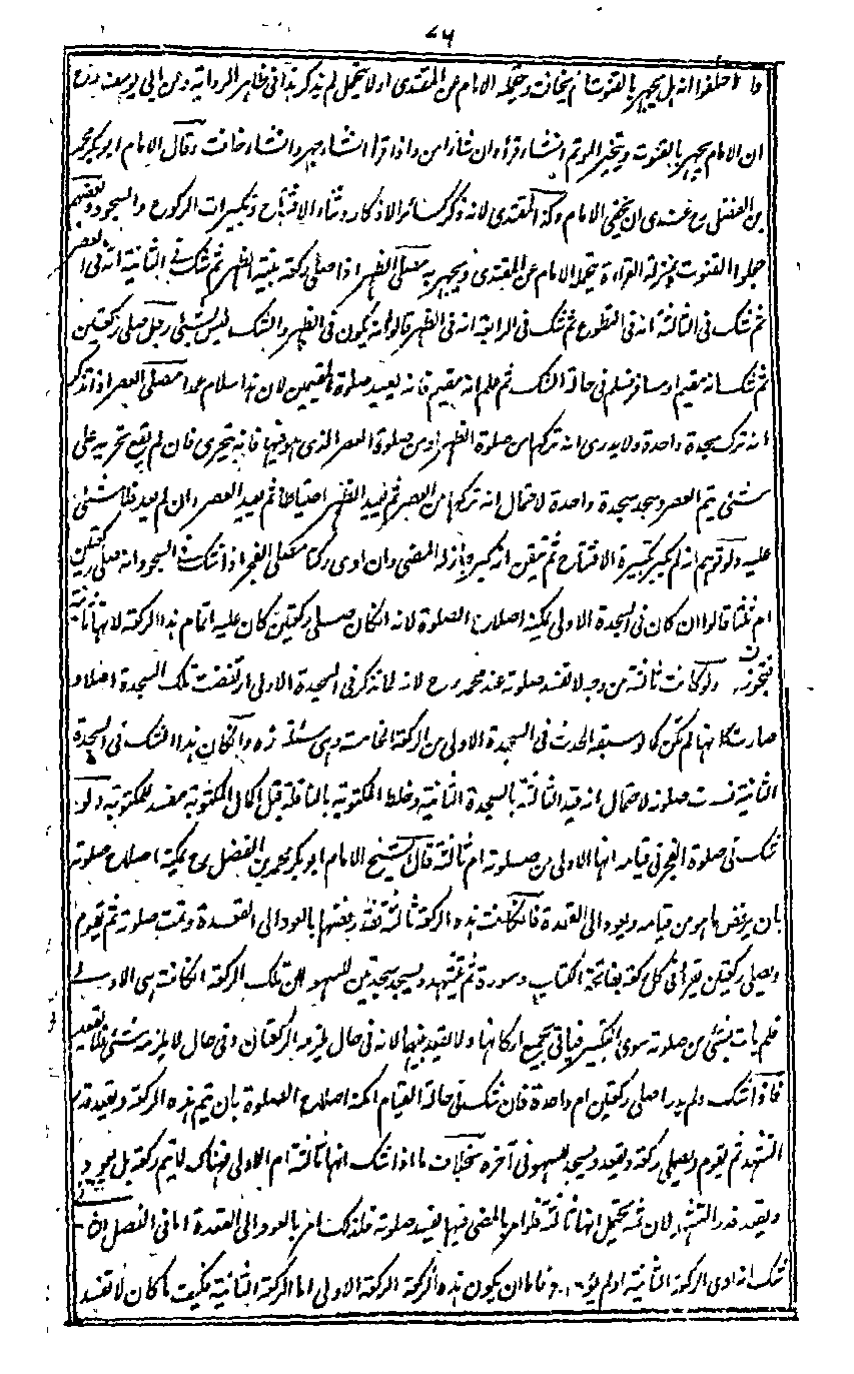 ٧٦
واختلفوا انه هل يجهر بالقنوت ام يخافت و يتحمله الامام عن المقتدى او لا يتحمل لم يذكر هذا فى ظاهر الرواية وعن ابى يوسف رح
ان الامام يجهر بالقنوت ويتخير المؤتم ان شاء قرأ وان شاء امن واذا قرأ ان شاء جهر وان شاء خافت وقال الامام ابو بكر محمد
بن الفضل رح عندى ان يخفى الامام وكذا المقتدى لانه ذكر كسائر الاذكار وثناء الافتتاح وتكبيرات الركوع والسجود وبعضهم
جعلوا القنوت بمنزلة القراءة يتحملها الامام عن المقتدى ويجهر به مصلى الظهر اذا صلى ركعة بنية الظهر ثم شك فى الثانية انه فى العصر
ثم شك فى الثالثة انه فى التطوع ثم شك فى الرابعة انه فى الظهر قالوا انه يكون فى الظهر والشك ليس بشئ رجل صلى ركعتين
ثم شك انه مقيم او مسافر فسلم فى حالة الشك ثم علم انه مقيم فانه يعيد صلوة المقيمين لان هذا سلام عمدا مصلى العصر اذا تذكر
انه ترك سجدة واحدة ولا يدرى انه تركها من صلوة الظهر او من صلوة العصر الذى هو فيها فانه يتحرى فان لم يقع تحريه على
شئ يتم العصر و سجد سجدة واحدة لاحتمال انه تركها من العصر ثم يعيد الظهر احتياطا ثم يعيد العصر وان لم يعد فلا شئ
عليه ولو توهم انه لم يكبر تكبيرة الافتتاح ثم تيقن انه كبر جاز له المضى وان ادى ركنا مصلى الفجر اذا شك فى السجود انه صلى ركعتين
ام ثلثا قالوا ان كان فى السجدة الاولى يمكنه اصلاح الصلوة لانه ان كان صلى ركعتين كان عليه اتمام هذه الركعة لانها ثانية
فتجوز ولو كانت ثالثة من وجه لا تفسد صلوته عند محمد رح لانه لما تذكر فى السجدة الاولى ارتفضت تلك السجدة اصلا و
صارت كانها لم تكن كما لو سبقه الحدث فى السجدة الاولى من الركعة الخامسة وهى مسئلة زه وان كان هذا الشك فى السجدة
الثانية فسدت صلوته لاحتمال انه قيد الثالثة بالسجدة الثانية وخلط المكتوبة بالنافلة قبل اكمال المكتوبة مفسد للمكتوبة ولو
شك فى صلوة الفجر فى قيامه انها الاولى من صلوته ام ثالثة قال الشيخ الامام ابو بكر محمد بن الفضل رح يمكنه اصلاح صلوته
بان يرفض ما هو من قيامه ويعود الى القعدة فان كانت هذه الركعة ثالثة فقد رفضها بالعود الى القعدة وتمت صلوته ثم يقوم
ويصلى ركعتين يقرأ فى كل ركعة بفاتحة الكتاب وسورة ثم يتشهد ويسجد سجدتين للسهو لان تلك الركعة ان كانت هى الاولى
فلم يات بشئ من صلوته سوى التكبير فياتى بجميع اركانها ولا يقعد بينهما لانه فى حال يلزمه الركعتان وفى حال لا يلزمه شئ فلا يقعد
فاذا شك ولم يدر اصلى ركعتين ام واحدة فان شك فى حالة القيام امكنه اصلاح الصلوة بان يتم هذه الركعة ويقعد قدر
التشهد ثم يقوم ويصلى ركعة ويقعد ويسجد للسهو فى آخره بخلاف ما اذا شك انها ثالثة ام الاولى فهناك لا يتم ركعة بل يعود
ويقعد قدر التشهد لان ثمه يحتمل انها ثالثة فلو امر بالمضى فيها يفسد صلوته فلذلك امر بالعود الى القعدة اما فى الفصل
شك انه ادى الركعة الثانية او لم يؤد فاما ان يكون هذه الركعة الركعة الاولى اما الركعة الثانية فكيف ما كان لا تفسد